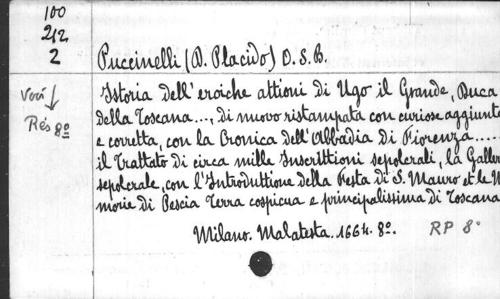 100
242
2
Puccinelli (D. Placido) O. S. B.
Voir
Rés 8º
Istoria dell'eroiche attioni di Ugo il Grande, Duca
della Toscana..., di nuovo ristampata con curiose aggiunte
e corretta, con la Cronica dell'Abbadia di Fiorenza....
il Trattato di circa mille Inscrittioni sepolcrali, la Galler
sepolcrale, con l'Introduttione della Festa di S. Mauro et le M
morie di Pescia Terra cospicua e principalissima di Toscana
Milano. Malatesta. 1664. 8º. RP 8º